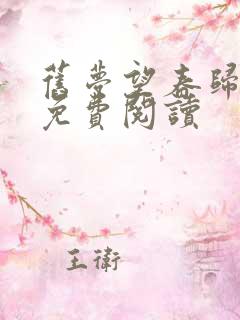 舊夢望春歸
免費閱讀
王衛